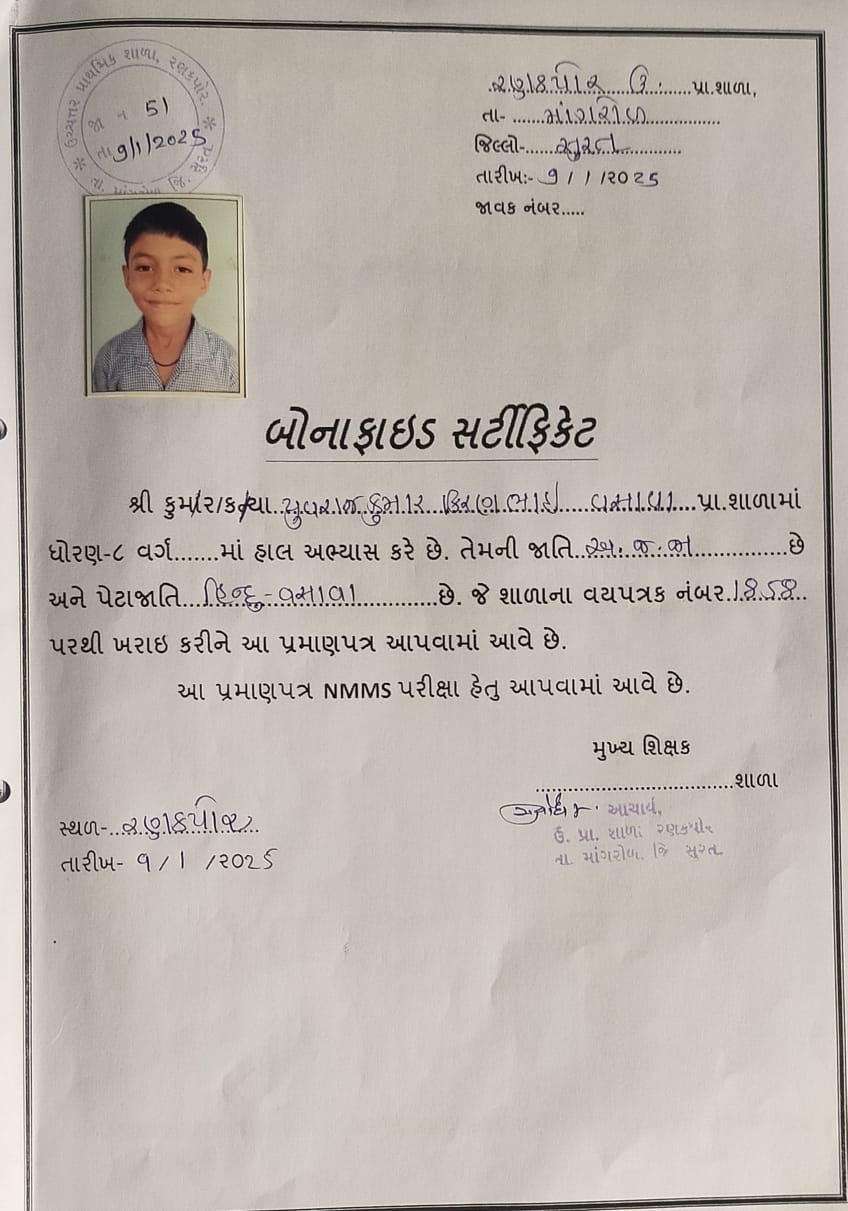 ઉચ્ચત્તર પ્રાથમિક શાળા, રણકપોર.
જા ન 51
તા 9/1/2025
તા. માંગરોળ જિ. સુરત
રણકપોર ઉ. પ્રા.શાળા,
તા- માંગરોળ
જિલ્લો- સુરત
તારીખ:- 9/1/2025
જાવક નંબર.....
બોનાફાઇડ સર્ટીફિકેટ
શ્રી કુમાર/કન્યા યુવરાજકુમાર કિરણભાઇ વસાવા પ્રા.શાળામાં
ધોરણ-૮ વર્ગ.......માં હાલ અભ્યાસ કરે છે. તેમની જાતિ અ.જ.જા છે
અને પેટાજાતિ હિન્દુ-વસાવા છે. જે શાળાના વયપત્રક નંબર
પરથી ખરાઇ કરીને આ પ્રમાણપત્ર આપવામાં આવે છે.
આ પ્રમાણપત્ર NMMS પરીક્ષા હેતુ આપવામાં આવે છે.
મુખ્ય શિક્ષક
શાળા
સ્થળ- રણકપોર
તારીખ- 9/1/2025
આચાર્ય,
ઉ. પ્રા. શાળા રણકપોર
તા. માંગરોળ. જિ સુરત